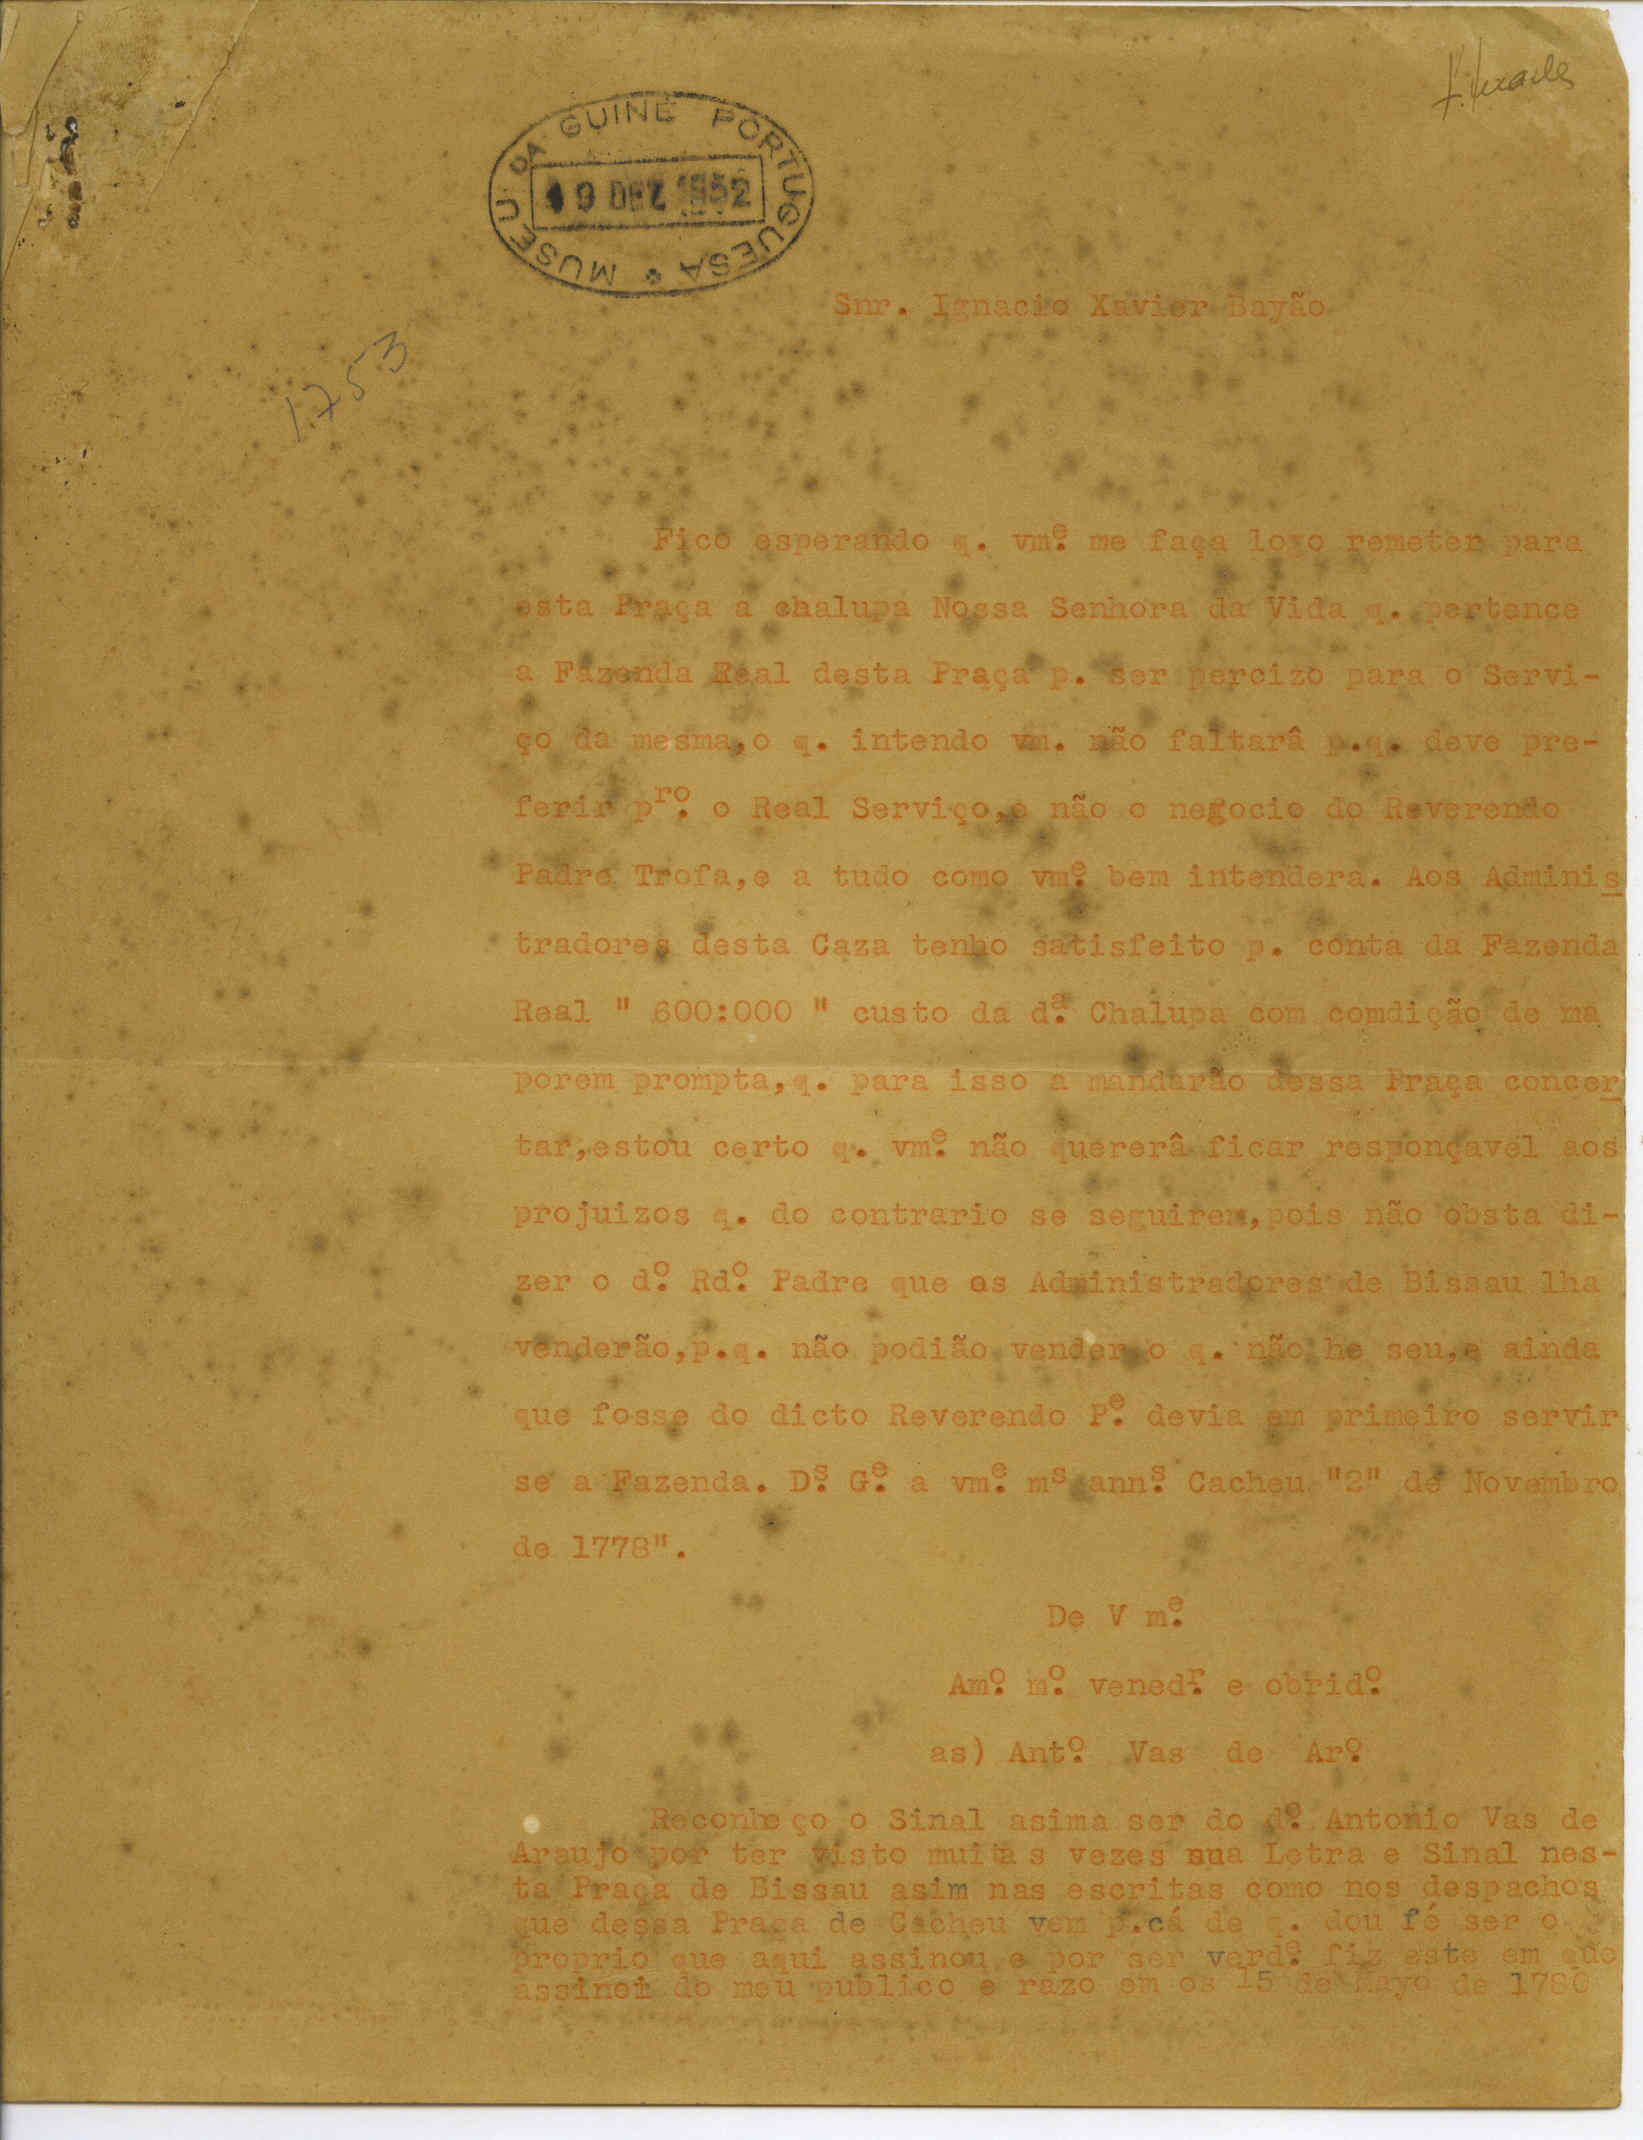 MUSEU DA GUINÉ PORTUGUESA *
19 DEZ 1952
1.753
Snr. Ignacio Xavier Bayão
Fico esperando q. vm.e me faça logo remeter para
esta Praça a chalupa Nossa Senhora da Vida q. pertence
a Fazenda Real desta Praça p. ser percizo para o Servi-
ço da mesma,o q. intendo vm. não faltarâ p.q. deve pre-
ferir p.ro o Real Serviço,e não o negocio do Reverendo
Padre Trofa,e a tudo como vm.e bem intendera. Aos Adminis
tradores desta Caza tenho satisfeito p. conta da Fazenda
Real " 600:000 " custo da d.a Chalupa com comdição de ma
porem prompta,q. para isso a mandarão dessa Praça concer
tar,estou certo q. vm.e não quererâ ficar responçavel aos
projuizos q. do contrario se seguirem,pois não obsta di-
zer o d.o Rd.o Padre que os Administradores de Bissau lha
venderão,p.q. não podião vender o q. não he seu,e ainda
que fosse do dicto Reverendo P.e devia em primeiro servir
se a Fazenda. D.s G.e a vm.e ms ann.s Cacheu "2" de Novembro
de 1778".
De V m.e
Am.o m.o vened.r e obrid.o
as) Ant.o Vas de Ar.o
Reconheço o Sinal asima ser do d.o Antonio Vas de
Araujo por ter visto muitas vezes sua Letra e Sinal nes-
ta Praça de Bissau asim nas escritas como nos despachos
que dessa Praça de Cacheu vem p.cá de q. dou fé ser o
proprio que aqui assinou e por ser verd.e fiz este em que
assinei do meu publico e razo em os 15 de Mayo de 1780